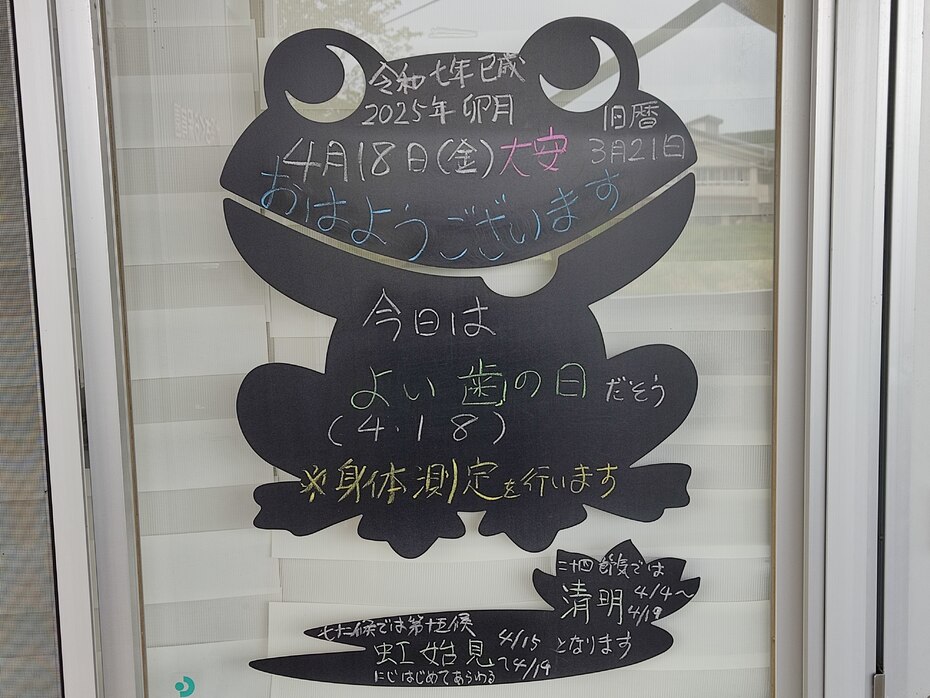 令和七年 巳歳
2025年 卯月
旧暦
4月18日(金)大安
3月21日
おはようございます
今日は
よい歯の日だそう
(4.18)
※身体測定を行います
二十四節気では
清明 4/4〜
4/19
七十二候では第十五候
虹始見 4/15
〜4/19
となります
にじはじめてあらわる